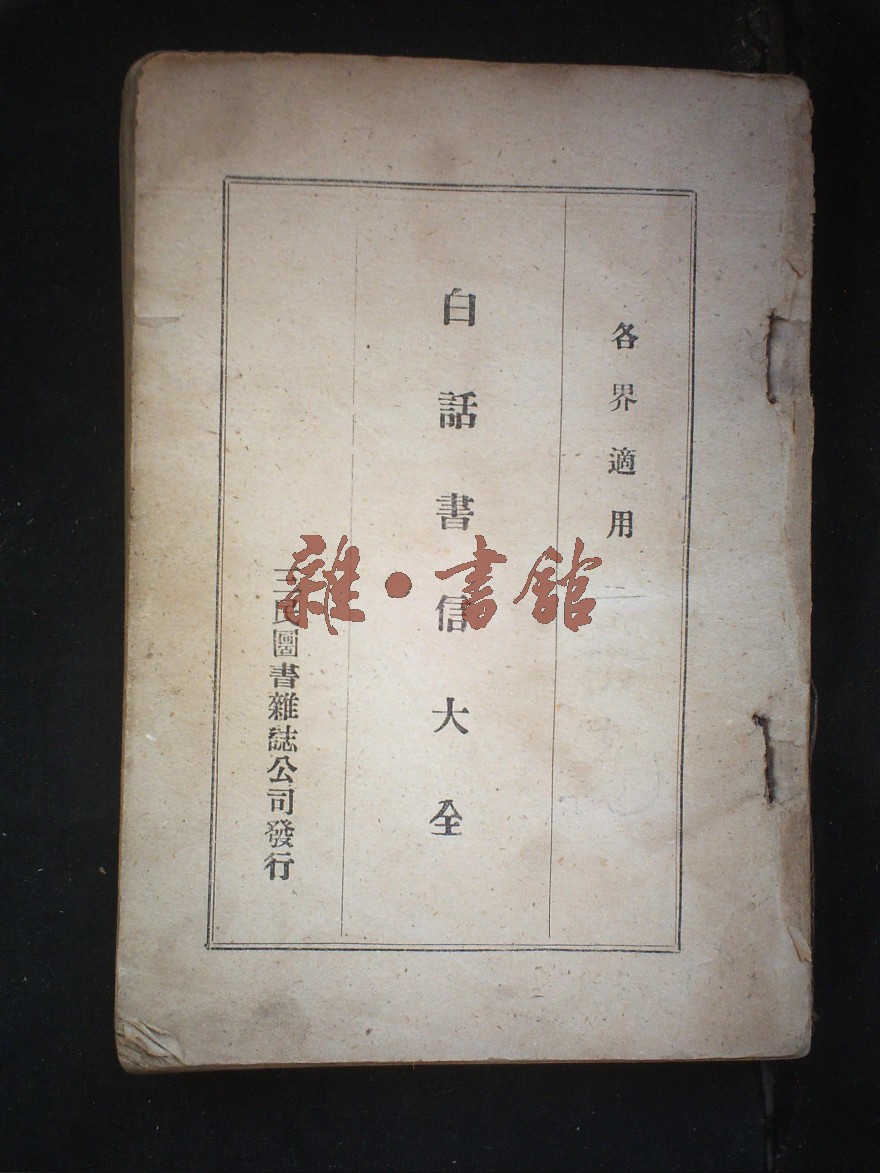 各界適用
白話書信大全
三民圖書雜誌公司發行
雜·書館